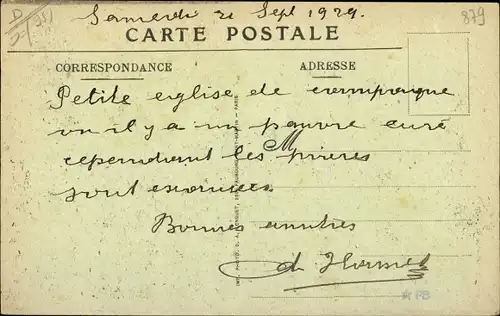 Samedi 21 Sept 1929.
879
CARTE POSTALE
CORRESPONDANCE
ADRESSE
Petite eglise de campagne
ou il y a un pauvre curé
cependant les prieres
sont exaucees.
Bonnes amities